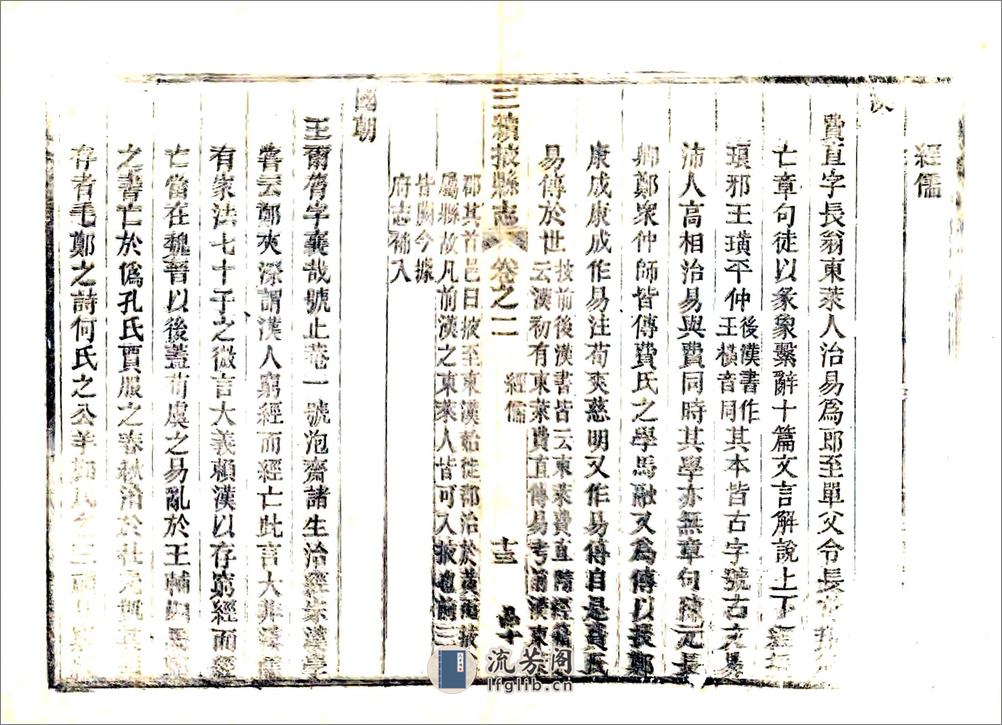 經儒
漢
費直字長翁東萊人治易爲郎至單父令長
亡章句徒以彖象繫辭十篇文言解說上下經
琅邪王璜平仲後漢書作王橫音同其本皆古字號古文易
沛人高相治易與費同時其學亦無章句陳元長
鄭眾仲師皆傳費氏之學馬融又爲傳以授鄭
康成康成作易注荀爽慈明又作易傳自是費氏
易傳於世按前後漢書皆云東萊費直隋經籍
云漢初有東萊費直傳易考前漢東
三續掖縣志 卷之二 經儒 十三
郡其首邑曰掖至東漢始徙郡治於黃縣掖
屬縣故凡前漢之東萊人皆可入掖志前三
皆闕今據
府志補入
國朝
王爾膂字襄哉號止菴一號泡齋諸生治經宗漢
嘗云鄭夾漈謂漢人窮經而經亡此言大非漢儒
有家法七十子之微言大義賴漢以存窮經而經
亡當在魏晉以後蓋荀虞之易亂於王輔嗣馬鄭
之書亡於僞孔氏賈服之春秋汨於杜元凱
存者毛鄭之詩何氏之公羊鄭氏之三禮
流芳阁
lfglib.cn